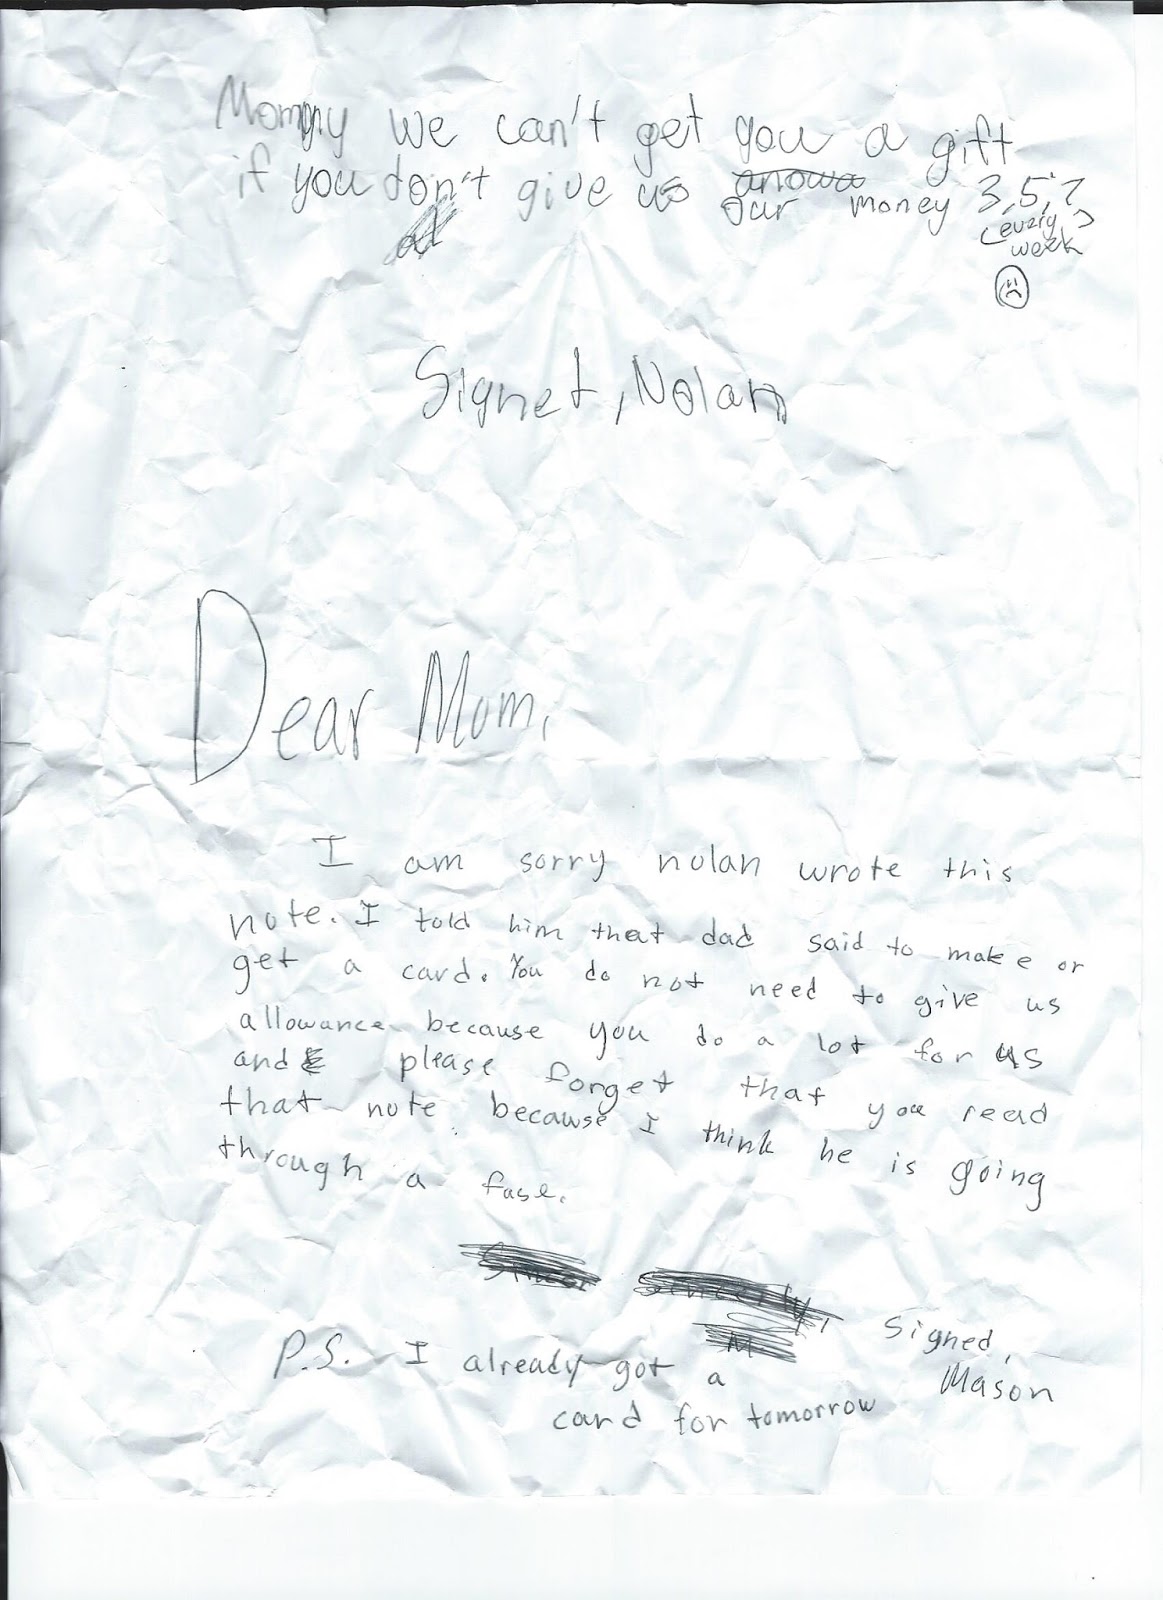 Mommy we can't get you a gift
if you don't give us anowa our money 3,5,7
(every
week)
Signet, Nolan
Dear Mom,
I am sorry nolan wrote this
note. I told him that dad said to make or
get a card. You do not need to give us
allowance because you do a lot for us
and please forget that you read
that note because I think he is going
through a fase.
Sincerly,
M
Signed,
Mason
P.S. I already got a
card for tomorrow